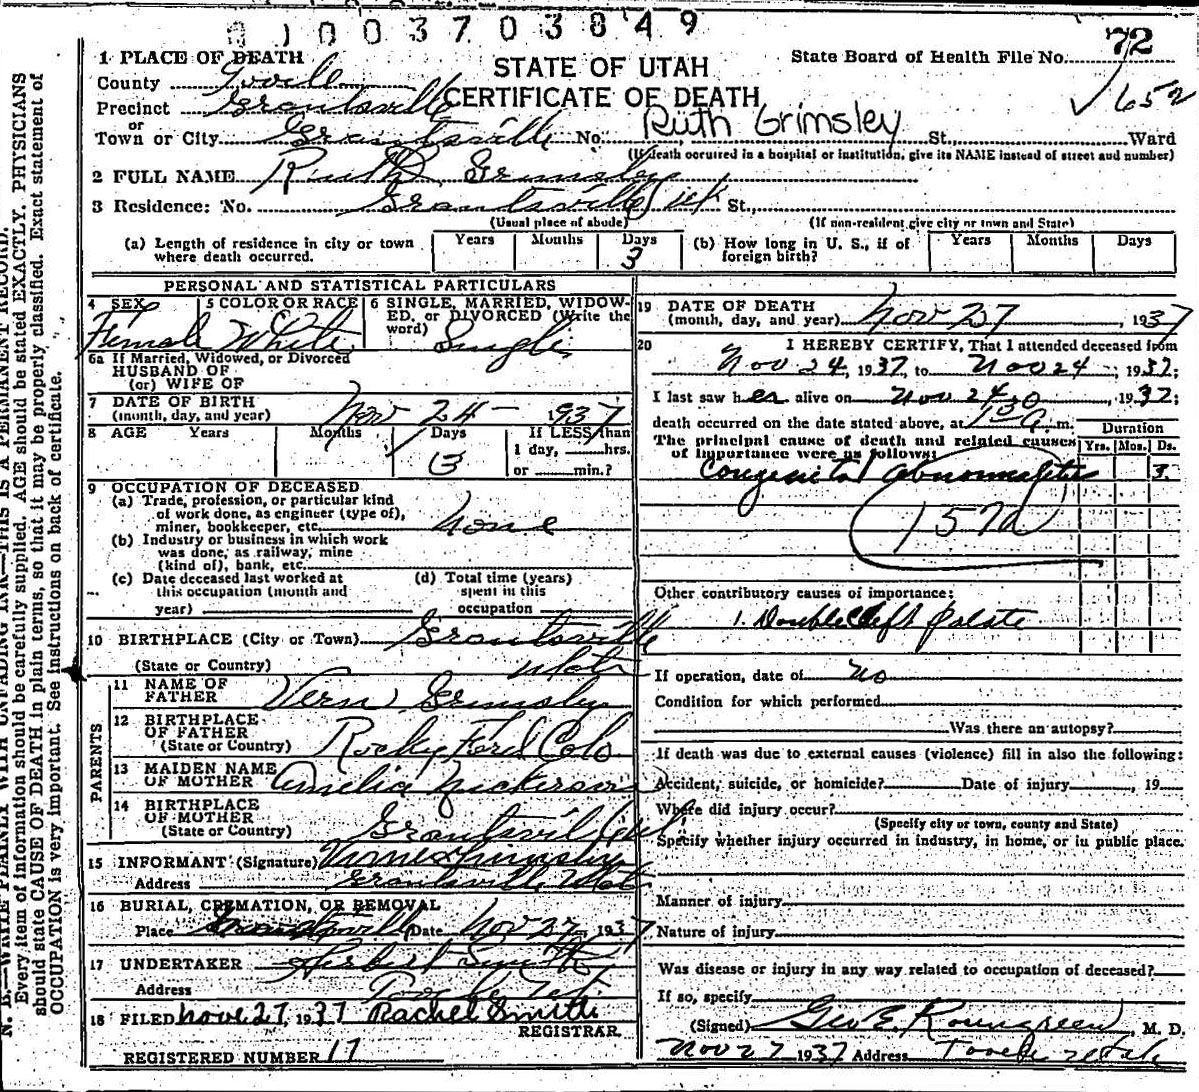 8 1 0 0 3 7 0 3 0 4 9
1 PLACE OF DEATH
County Tooele
Precinct Grantsville
or
Town or City Grantsville No. Ruth Grimsley St., Ward
(If death occurred in a hospital or institution, give its NAME instead of street and number)
STATE OF UTAH
CERTIFICATE OF DEATH
State Board of Health File No. 72
652
2 FULL NAME Ruth Grimsley
3 Residence: No. Grantsville Utah St.,
(Usual place of abode) (If non-resident give city or town and State)
(a) Length of residence in city or town where death occurred. Years Months Days 3
(b) How long in U. S., if of foreign birth? Years Months Days
PERSONAL AND STATISTICAL PARTICULARS
4 SEX Female
5 COLOR OR RACE White
6 SINGLE, MARRIED, WIDOWED, or DIVORCED (Write the word) Single
6a If Married, Widowed, or Divorced
HUSBAND OF
(or) WIFE OF
7 DATE OF BIRTH
(month, day, and year) Nov 24 - 1937
8 AGE Years Months Days 3 If LESS than
1 day, hrs.
or min.?
9 OCCUPATION OF DECEASED
(a) Trade, profession, or particular kind
of work done, as engineer (type of),
miner, bookkeeper, etc. None
(b) Industry or business in which work
was done, as railway, mine
(kind of), bank, etc.
(c) Date deceased last worked at
this occupation (month and
year)
(d) Total time (years)
spent in this
occupation
10 BIRTHPLACE (City or Town) Grantsville
(State or Country) Utah
PARENTS
11 NAME OF
FATHER Vern Grimsley
12 BIRTHPLACE
OF FATHER
(State or Country) Rocky Ford Colo
13 MAIDEN NAME
OF MOTHER Amelia Nickerson
14 BIRTHPLACE
OF MOTHER
(State or Country) Grantsville
15 INFORMANT (Signature) Grimsley
Address Grantsville Utah
16 BURIAL, CREMATION, OR REMOVAL
Place Grantsville Date Nov 27, 1937
17 UNDERTAKER Herbert Smith
Address Tooele
18 FILED Nove 27, 1937 Rachel Smith
REGISTRAR.
REGISTERED NUMBER 17
19 DATE OF DEATH
(month, day, and year) Nov 27, 1937
20 I HEREBY CERTIFY, That I attended deceased from
Nov 24, 1937, to Nov 24, 1937;
I last saw her alive on Nov 24, 1937;
death occurred on the date stated above, at m.
The principal cause of death and related causes
of importance were as follows:
Duration
Yrs. Mos. Ds.
Congenital abnormalities 3
157a
Other contributory causes of importance:
1. Double cleft palate
If operation, date of no
Condition for which performed
Was there an autopsy?
If death was due to external causes (violence) fill in also the following:
Accident, suicide, or homicide? Date of injury , 19
Where did injury occur?
(Specify city or town, county and State)
Specify whether injury occurred in industry, in home, or in public place.
Manner of injury
Nature of injury
Was disease or injury in any way related to occupation of deceased?
If so, specify
(Signed) Geo E. Roungreen, M. D.
Nov 27 1937 Address Tooele Utah
N. B.—WRITE PLAINLY WITH UNFADING INK—THIS IS A PERMANENT RECORD.
Every item of information should be carefully supplied. AGE should be stated EXACTLY. PHYSICIANS
should state CAUSE OF DEATH in plain terms, so that it may be properly classified. Exact statement of
OCCUPATION is very important. See instructions on back of certificate.